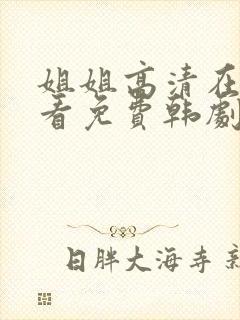 姐姐高清在
看免费韩剧
日胖大海寺新